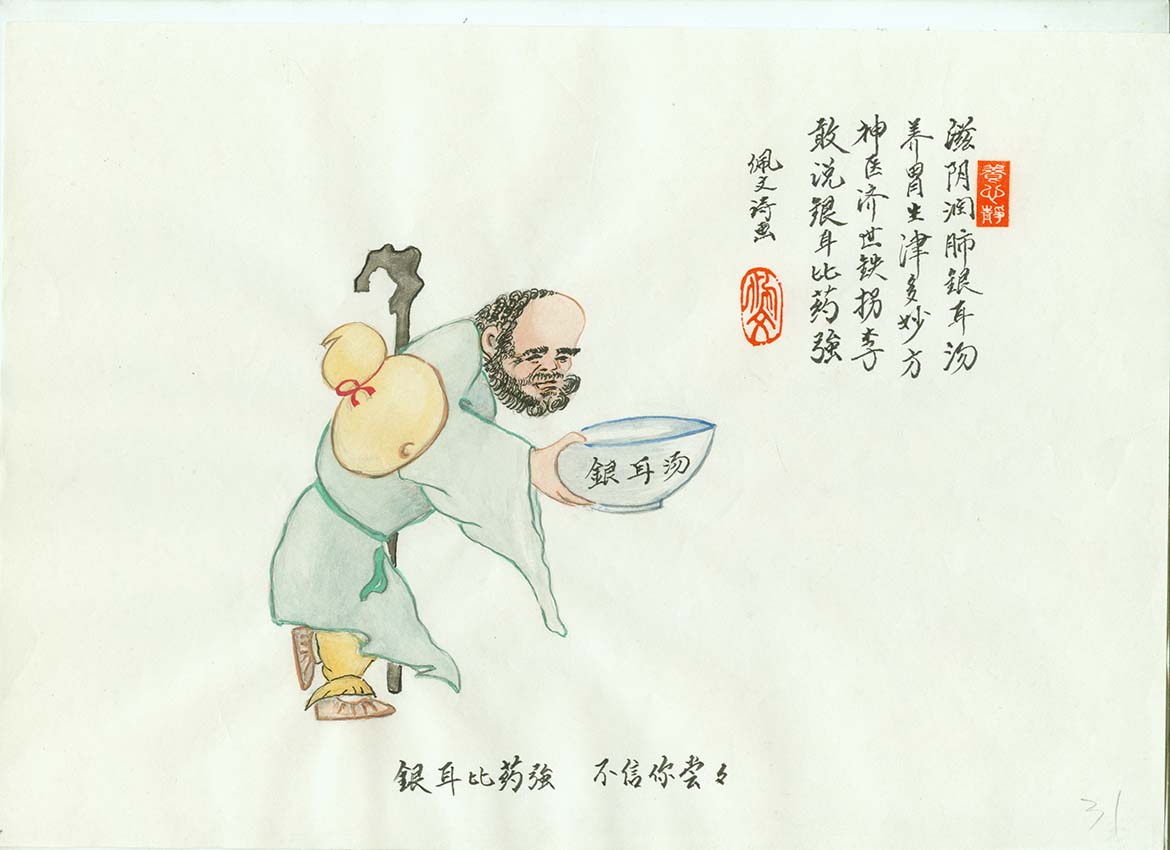 滋阴润肺銀耳汤
养胃生津多妙方
神医济世鉄拐李
敢说銀耳比药強
佩文诗画
養心靜
佩文
銀耳汤
銀耳比药強 不信你尝々
31